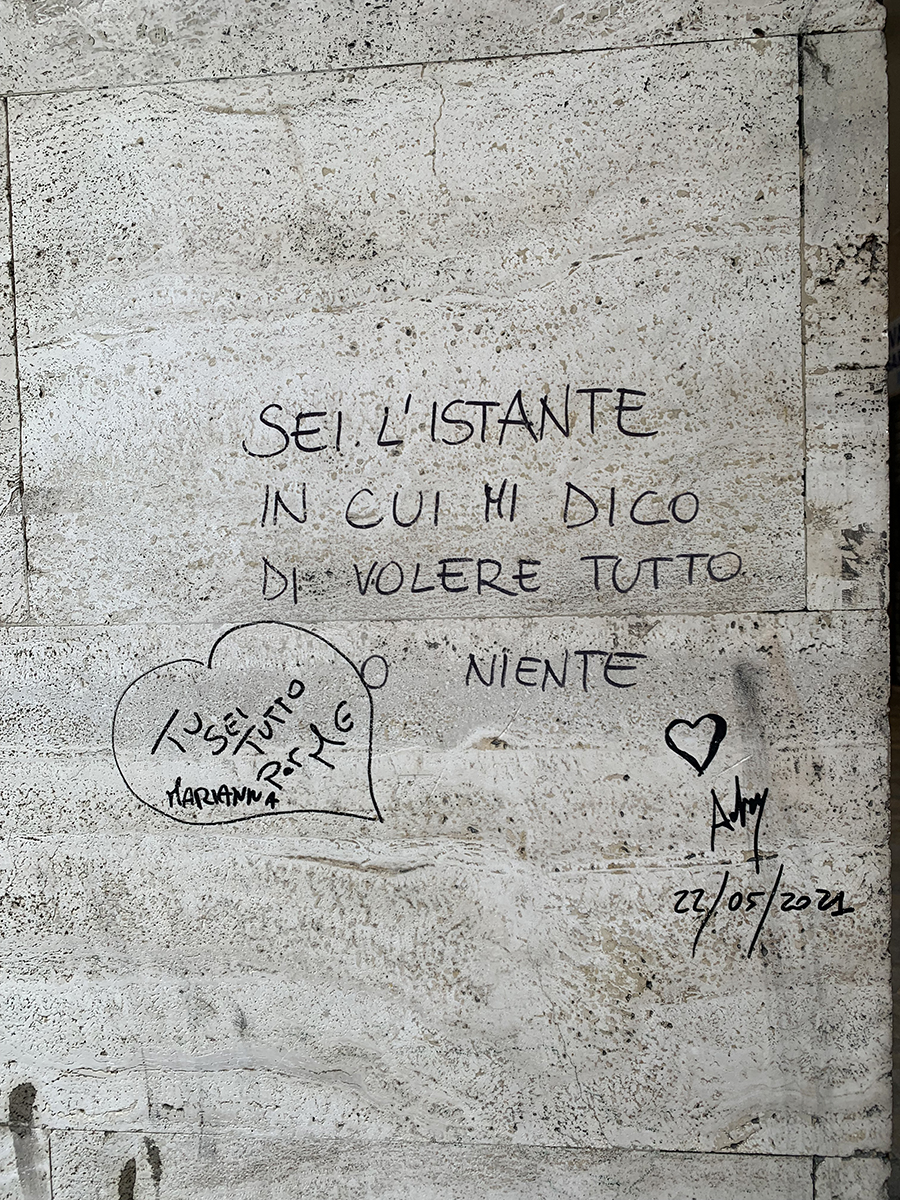 SEI L'ISTANTE
IN CUI MI DICO
DI VOLERE TUTTO
O NIENTE
TU
SEI
TUTTO
Per
ME
MARIANNA
22/05/2021